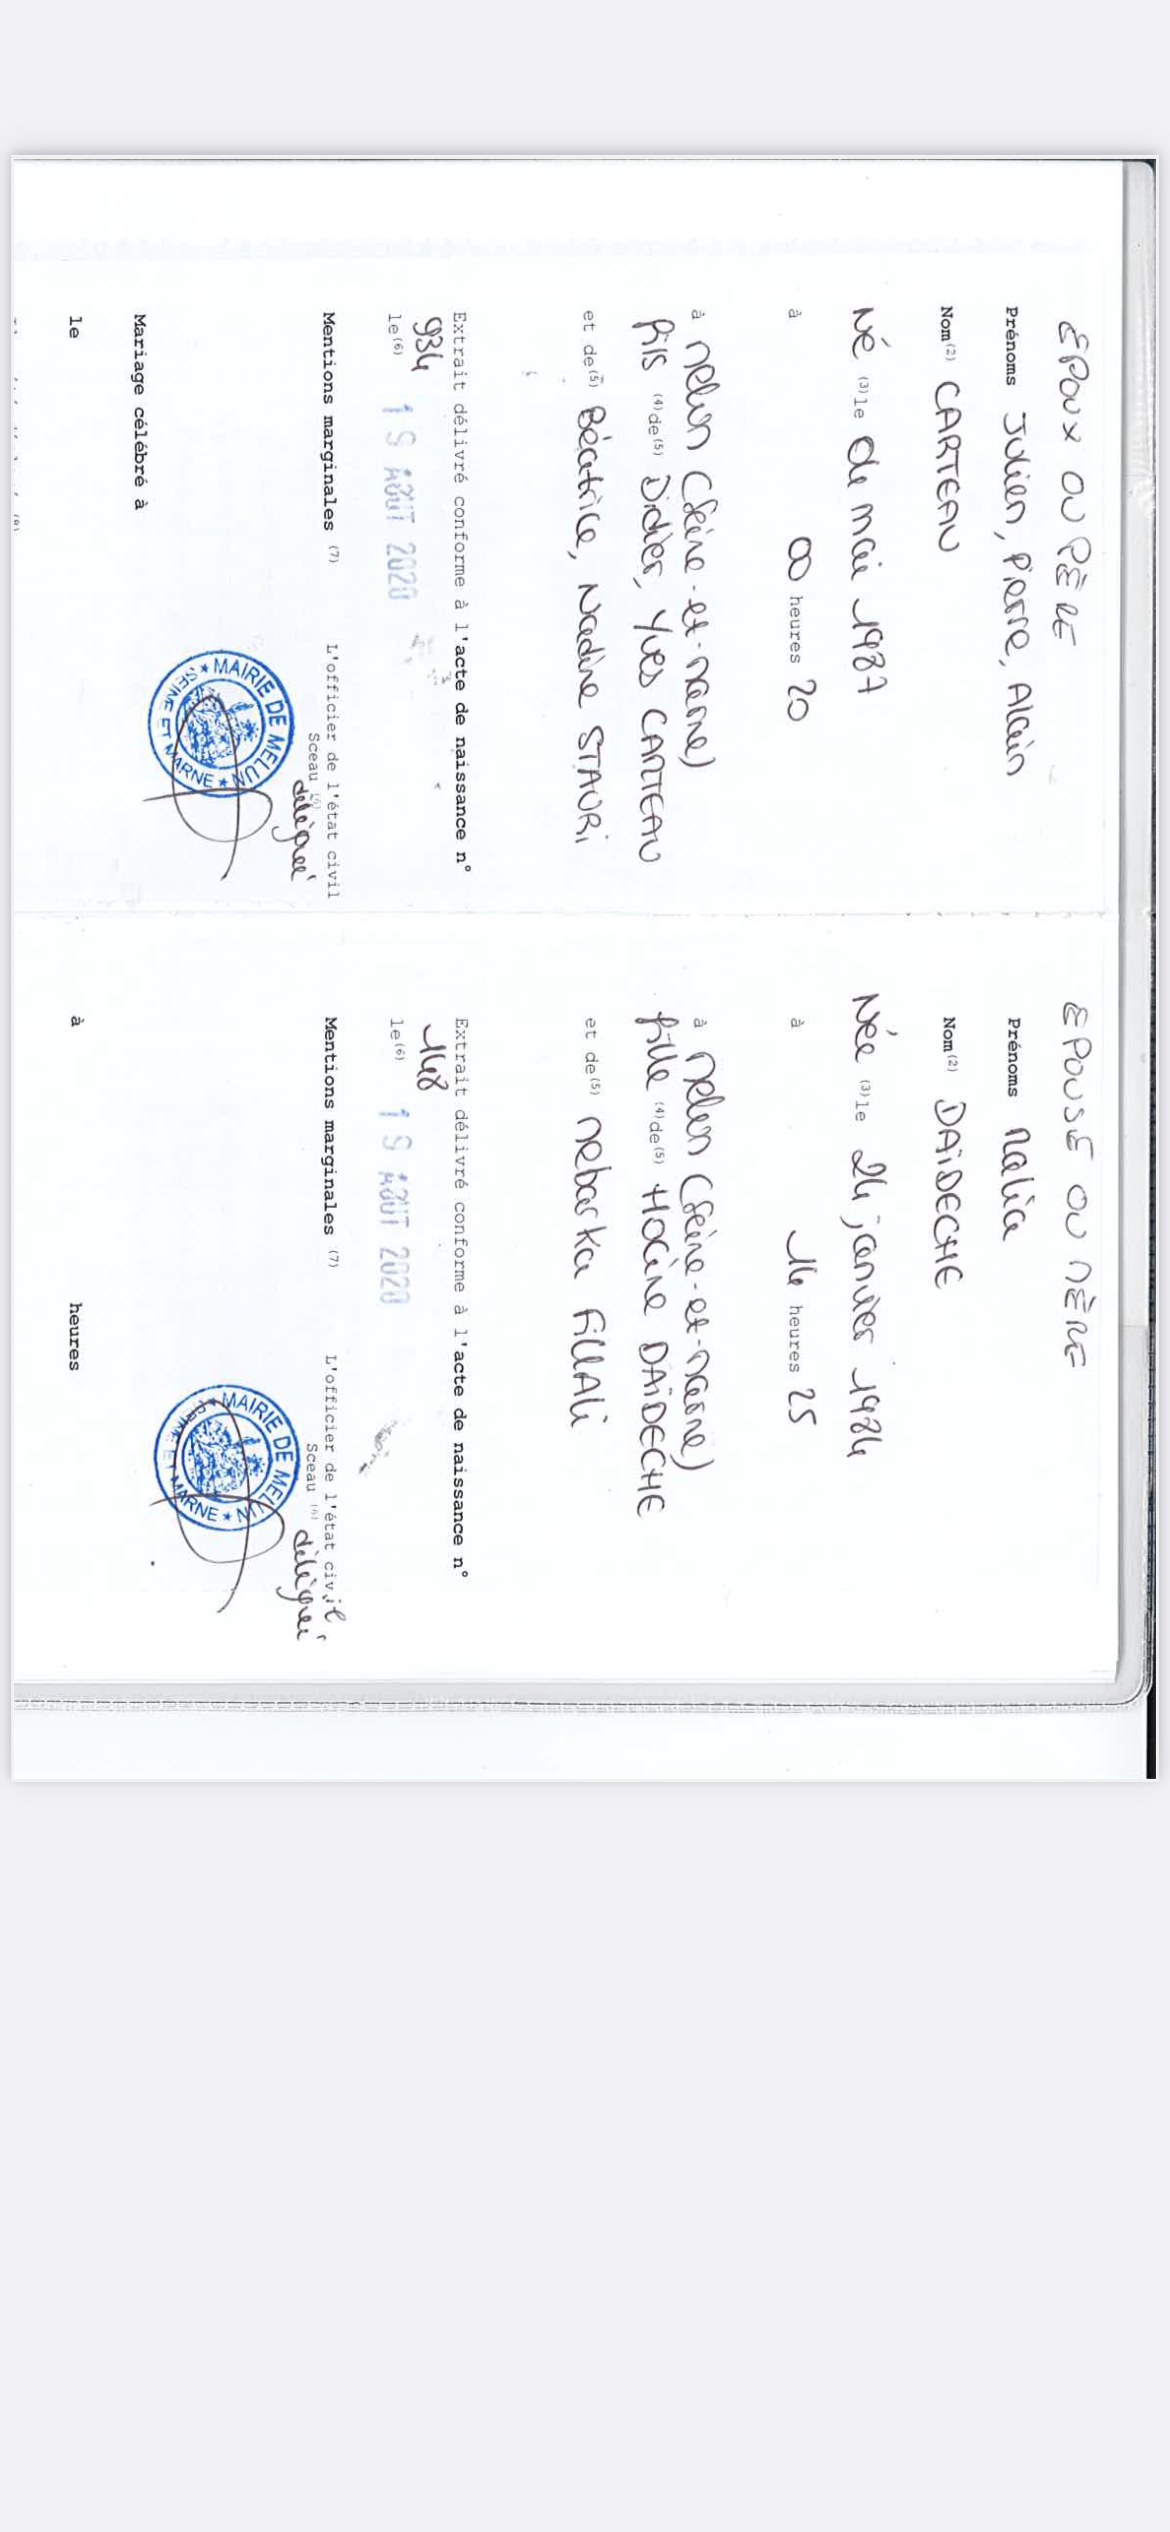 EPOUX OU PÈRE
Prénoms Julien, Pierre, Alain
Nom (2) CARTEAU
Né (3) le de mai 1987
à 00 heures 20
à Melun (Seine-et-Marne)
fils (4) de (5) Didier, Yves CARTEAU
et de (5) Béatrice, Nadine STAORI
Extrait délivré conforme à l'acte de naissance n°
934
le (6) 19 AOUT 2020
Mentions marginales (7) L'officier de l'état civil
Sceau (6) délégué
MAIRIE DE MELUN ★ SEINE ET MARNE ★
Mariage célébré à
le
EPOUSE OU MÈRE
Prénoms Malia
Nom (2) DAÏDECHE
Née (3) le 24 janvier 1984
à 14 heures 25
à Melun (Seine-et-Marne)
fille (4) de (5) HOCINE DAÏDECHE
et de (5) Mebarka FILLALI
Extrait délivré conforme à l'acte de naissance n°
148
le (6) 19 AOUT 2020
Mentions marginales (7) L'officier de l'état civil
Sceau (6) délégué
MAIRIE DE MELUN ★ SEINE ET MARNE ★
à heures